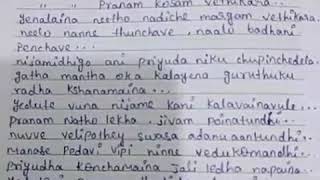 " " Pranam kosam vethikara..
Yenalaina neetho nadiche margam vethikara.
neelo nanne thunchave, naalo badhani
Penchave...
nijamidhigo ani priyuda niku chupinchedela.
gatha mantha oka kalayena guruthuku
radha kshanamaina...
Yedute vuna nijame kani kalavainavule...
pranam notho lekha, jivam poinatundhi..
nuvve velipothey swasa adanuaantundhi..
Manase Pedavi vipi ninne vedukomandhi..
priyudha konchamaina Jali ledha napaina..